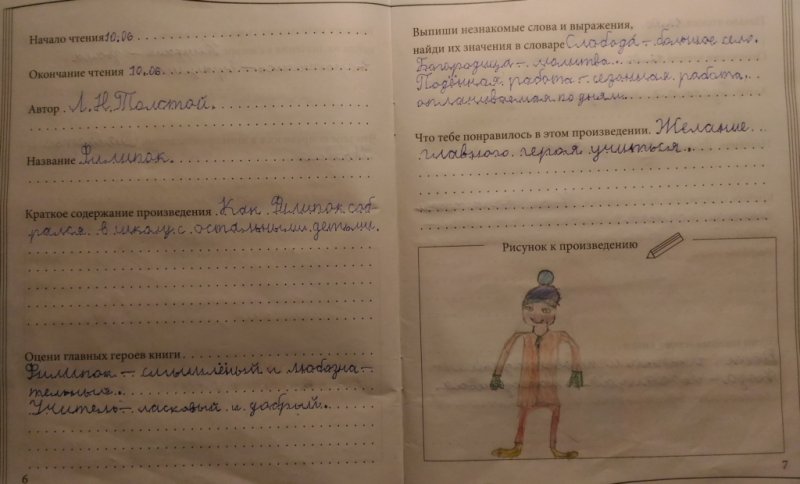 Начало чтения 10.06
Окончание чтения 10.06.
Автор. Л.Н.Толстой.
Название Филипок.
Краткое содержание произведения. Как Филипок соб-
рался в школу с остальными детьми.
Оцени главных героев книги
Филипок – смышлёный и любозна-
тельный.
Учитель – ласковый и добрый.
6
Выпиши незнакомые слова и выражения,
найди их значения в словаре Слобода́ – большое село.
Богородица – молитва.
Подённая работа – сезонная работа,
оплачиваемая по дням.
Что тебе понравилось в этом произведении. Желание
главного героя учиться.
Рисунок к произведению
7